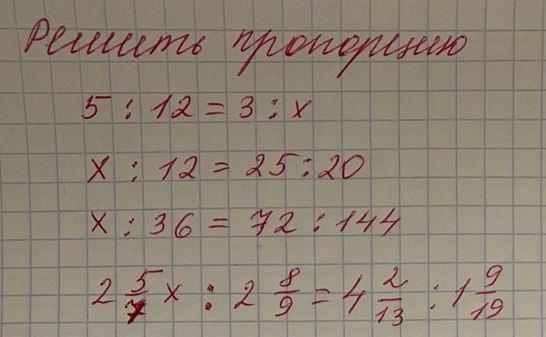 Решить пропорцию
5 : 12 = 3 : x
x : 12 = 25 : 20
x : 36 = 72 : 144
2 5/7 x : 2 8/9 = 4 2/13 : 1 9/19